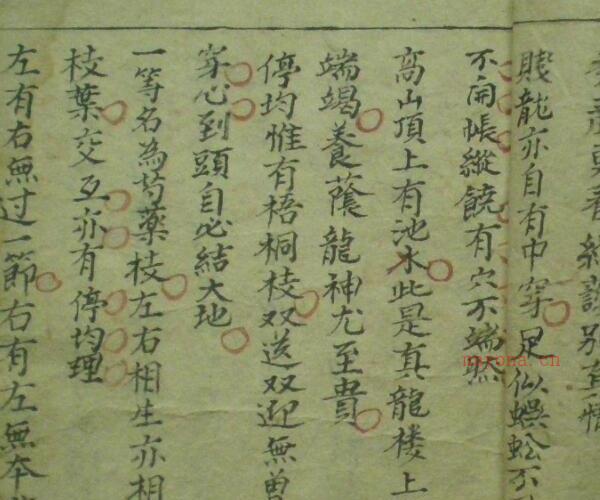 賤龍亦自有中穿足似蜈蚣不
不開帳縱饒有穴不端然
高山頂上有池水此是真龍樓上
端竭養蔭龍神尤至貴
停均惟有梧桐枝双送双迎無曾
穿心到頭自必結大地
一等名為芍藥枝左右相生亦相
枝葉交互亦有停均理
左有右無过一節右有左無本